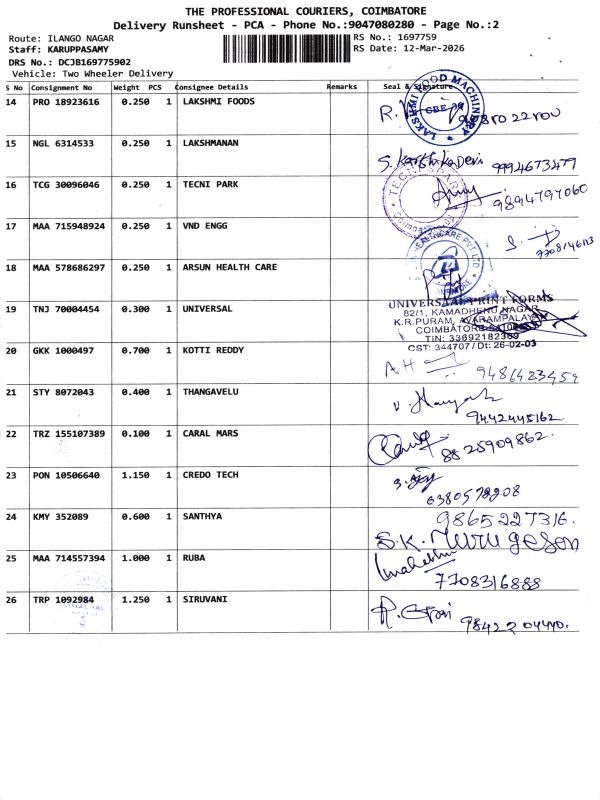 THE PROFESSIONAL COURIERS, COIMBATORE
Delivery Runsheet - PCA - Phone No.:9047080280 - Page No.:2
Route: ILANGO NAGAR RS No.: 1697759
Staff: KARUPPASAMY RS Date: 12-Mar-2026
DRS No.: DCJB169775902
Vehicle: Two Wheeler Delivery
S No Consignment No Weight PCS Consignee Details Remarks Seal & Signature
14 PRO 18923616 0.250 1 LAKSHMI FOODS
LAKSHMI FOOD MACHINERY
CBE
15 NGL 6314533 0.250 1 LAKSHMANAN
9994673477
16 TCG 30096046 0.250 1 TECNI PARK
9894797060
17 MAA 715948924 0.250 1 VND ENGG
18 MAA 578686297 0.250 1 ARSUN HEALTH CARE
HEALTHCARE PVT LTD
19 TNJ 70004454 0.300 1 UNIVERSAL
UNIVERSAL PRINT FORMS
82/1, KAMADHENU NAGAR
K.R.PURAM, AVARAMPALAYAM
COIMBATORE
TIN: 33692182369
CST: 344707 / Dt: 26-02-03
20 GKK 1000497 0.700 1 KOTTI REDDY
AH
9486423459
21 STY 8072043 0.400 1 THANGAVELU
9442445162.
22 TRZ 155107389 0.100 1 CARAL MARS
8825909862.
23 PON 10506640 1.150 1 CREDO TECH
24 KMY 352089 0.600 1 SANTHYA
9865227316.
S.K. Murugesan
25 MAA 714557394 1.000 1 RUBA
7708316888
26 TRP 1092984 1.250 1 SIRUVANI
9842204440.